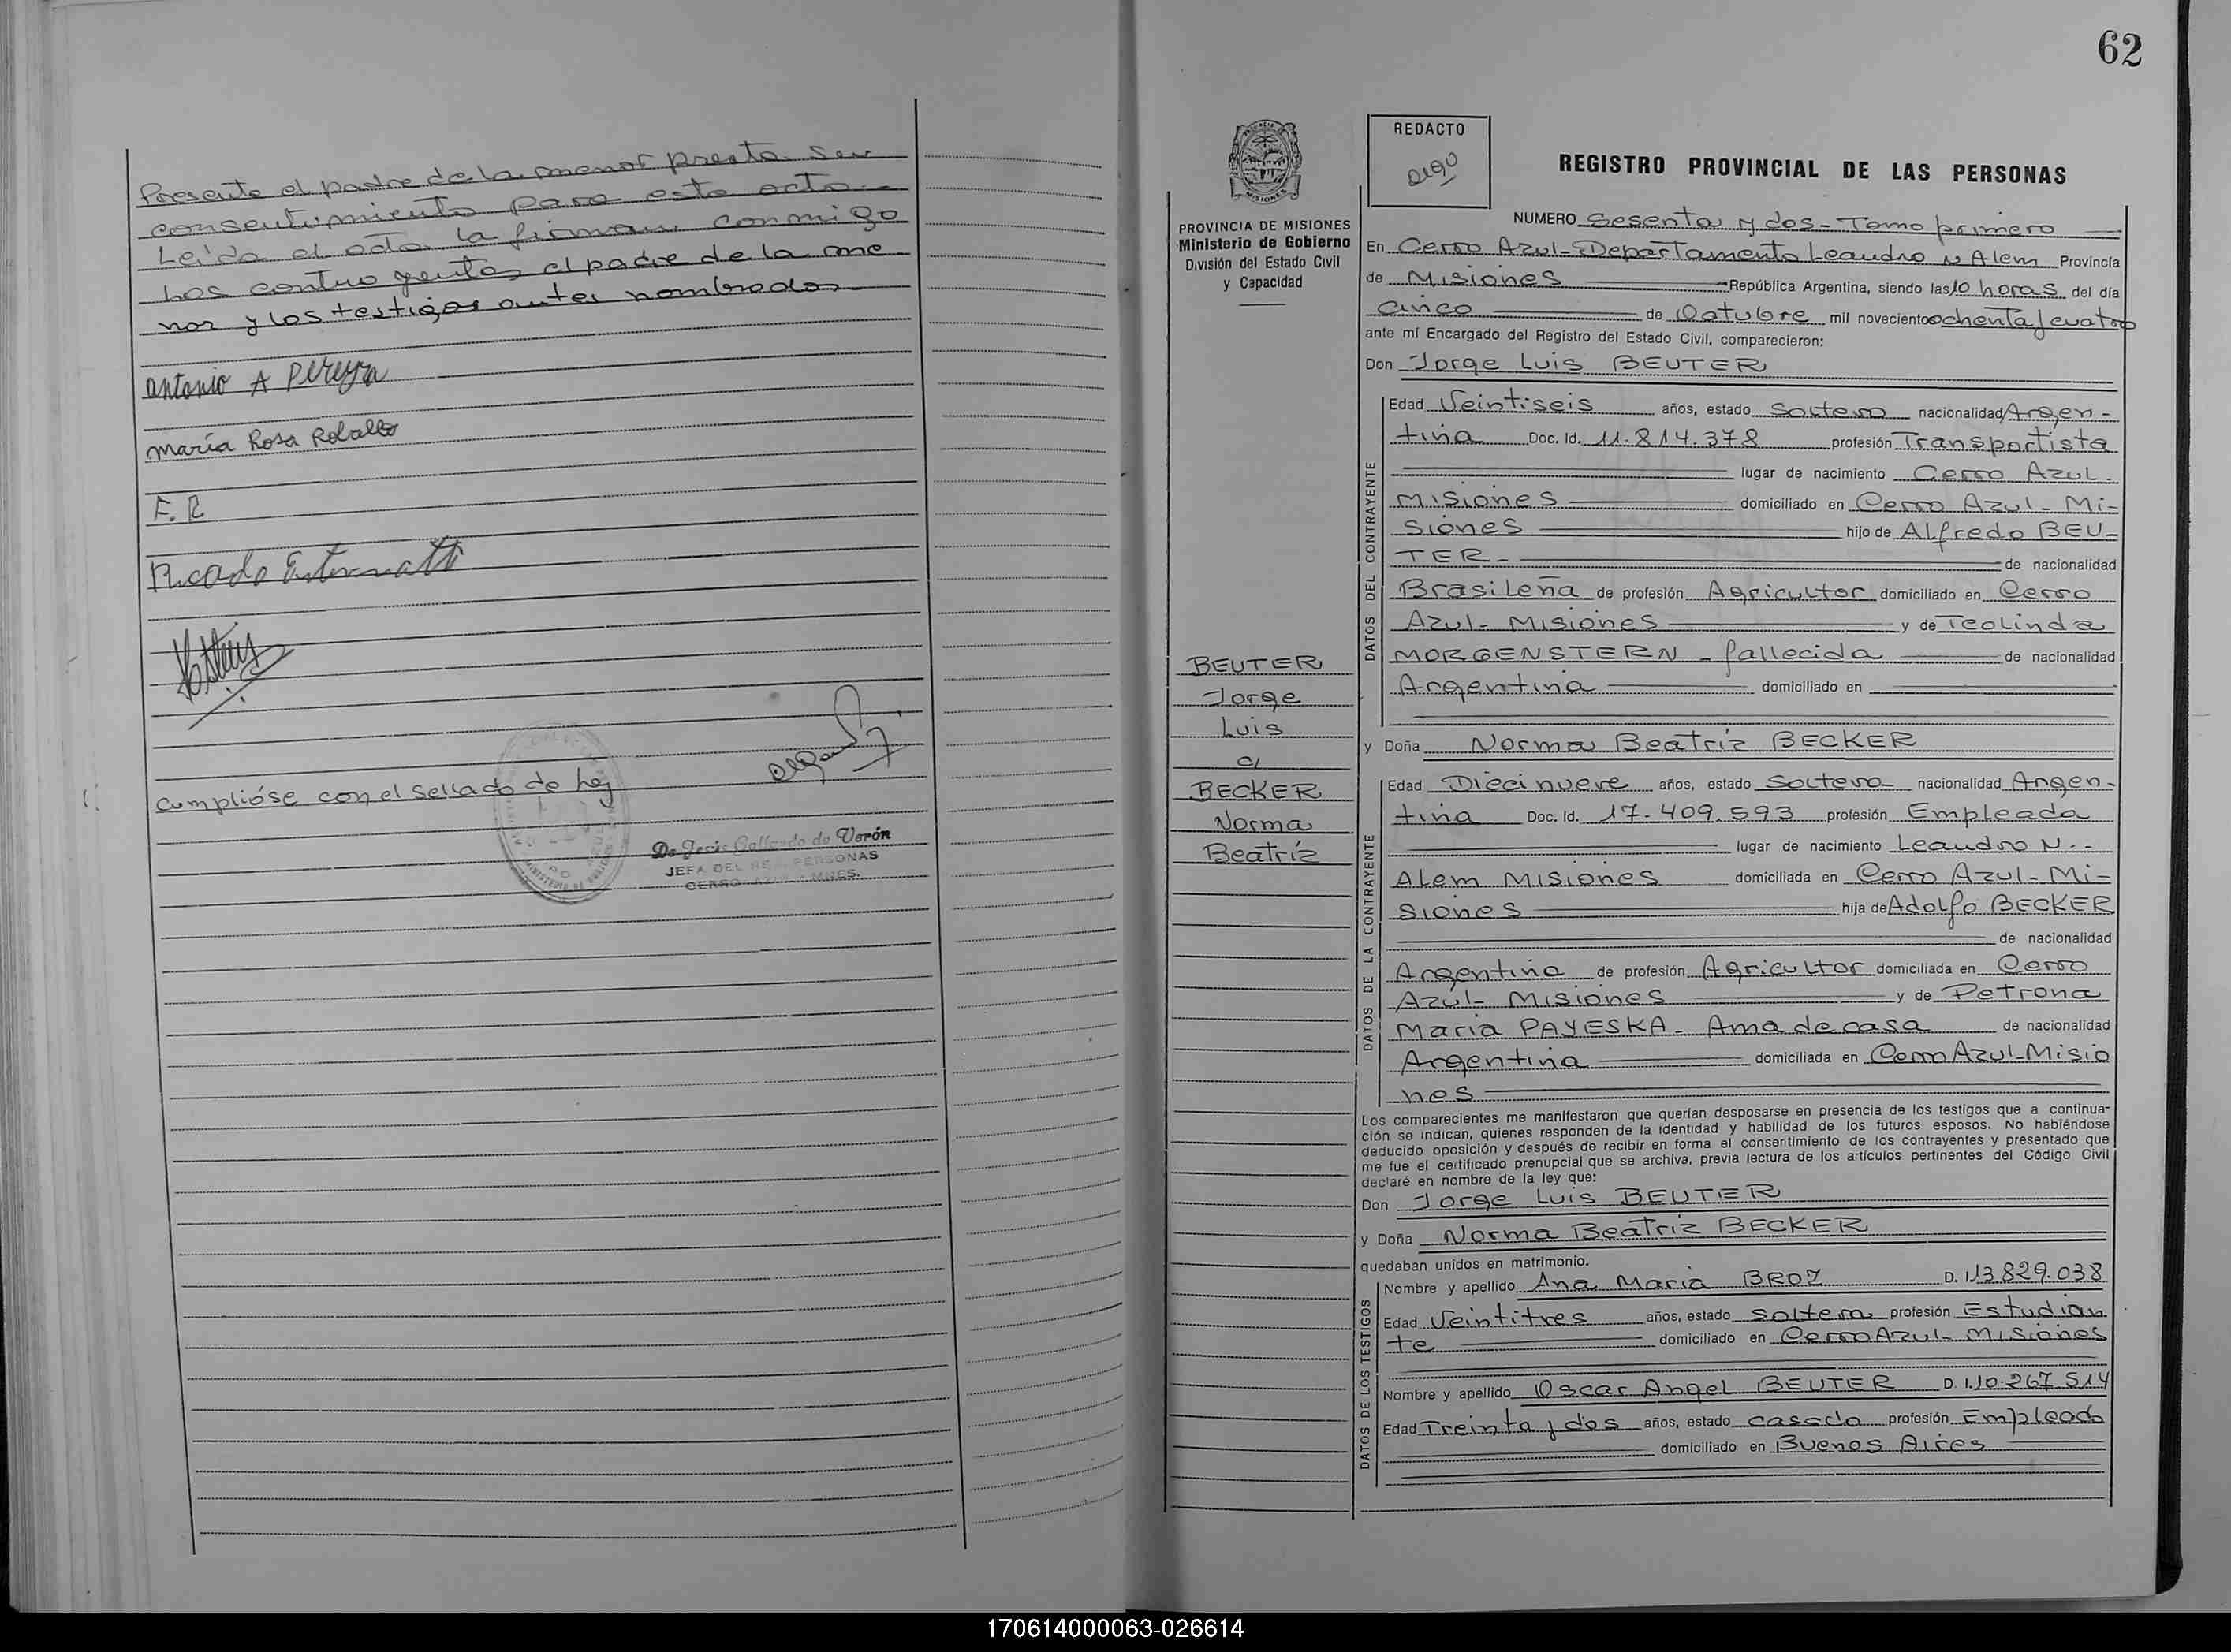 Presente el padre de la menor presta su
consentimiento para este acto.-
Leida el acta la firman conmigo
los contrayentes, el padre de la me
nor y los testigos antes nombrados-
Antonio A Pereyra
María Rosa Roballo
F. R
cumplióse con el sellado de ley
De Jesús Gallardo de Verón
JEFA DEL REG. PERSONAS
CERRO AZUL - MNES.
62
PROVINCIA DE MISIONES
Ministerio de Gobierno
División del Estado Civil
y Capacidad
BEUTER
Jorge
Luis
c/
BECKER
Norma
Beatríz
REDACTO
REGISTRO PROVINCIAL DE LAS PERSONAS
NUMERO Sesenta y dos - Tomo primero
En Cerro Azul - Departamento Leandro N Alem Provincia
de Misiones República Argentina, siendo las 10 horas del día
Cinco de Octubre mil novecientos ochenta y cuatro
ante mí Encargado del Registro del Estado Civil, comparecieron:
Don Jorge Luis BEUTER
DATOS DEL CONTRAYENTE
Edad Veintiseis años, estado Soltero nacionalidad Argen-
tina Doc. Id. 11.814.378 profesión Transportista
lugar de nacimiento Cerro Azul-
Misiones domiciliado en Cerro Azul- Mi-
siones hijo de Alfredo BEU-
TER- de nacionalidad
Brasileña de profesión Agricultor domiciliado en Cerro
Azul- Misiones y de Teolinda
MORGENSTERN - fallecida de nacionalidad
Argentina domiciliado en
y Doña Norma Beatriz BECKER
DATOS DE LA CONTRAYENTE
Edad Diecinueve años, estado Soltera nacionalidad Argen-
tina Doc. Id. 17.409.593 profesión Empleada
lugar de nacimiento Leandro N.-
Alem Misiones domiciliada en Cerro Azul- Mi-
siones hija de Adolfo BECKER
de nacionalidad
Argentina de profesión Agricultor domiciliada en Cerro
Azul- Misiones y de Petrona
Maria PAYESKA- Ama de casa de nacionalidad
Argentina domiciliada en Cerro Azul-Misio
nes
Los comparecientes me manifestaron que querían desposarse en presencia de los testigos que a continua-
ción se indican, quienes responden de la identidad y habilidad de los futuros esposos. No habiéndose
deducido oposición y después de recibir en forma el consentimiento de los contrayentes y presentado que
me fue el certificado prenupcial que se archiva, previa lectura de los artículos pertinentes del Código Civil
declaré en nombre de la ley que:
Don Jorge Luis BEUTER
y Doña Norma Beatriz BECKER
quedaban unidos en matrimonio.
DATOS DE LOS TESTIGOS
Nombre y apellido Ana Maria BROZ D. I. 13.829.038
Edad Veintitres años, estado soltera profesión Estudian
te domiciliado en Cerro Azul- Misiones
Nombre y apellido Oscar Angel BEUTER D. I. 10.267.514
Edad Treinta y dos años, estado casado profesión Empleado
domiciliado en Buenos Aires
170614000063-026614